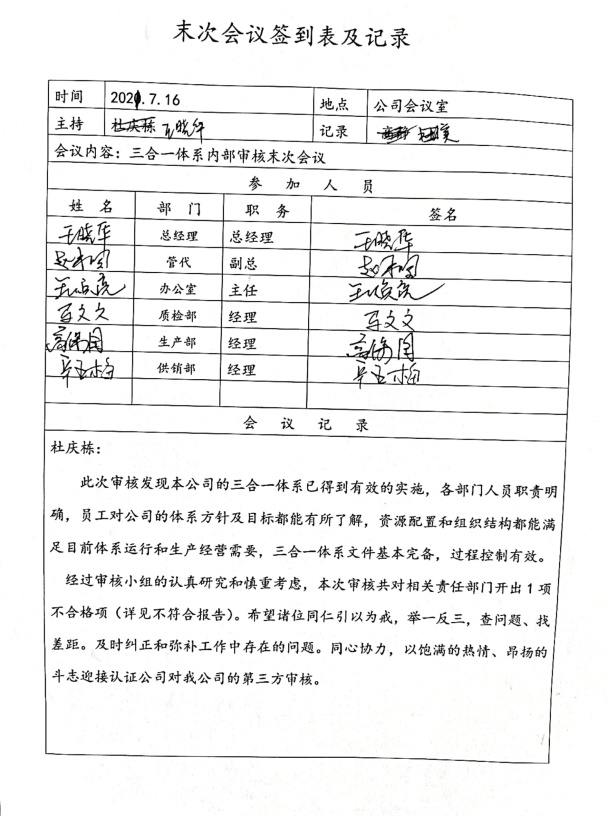 末次会议签到表及记录
时间 2021.7.16 地点 公司会议室
主持 杜庆栋 王晓华 记录
会议内容：三合一体系内部审核末次会议
参加人员
姓名 部门 职务 签名
王晓华 总经理 总经理 王晓华
管代 副总
办公室 主任
质检部 经理
生产部 经理
供销部 经理
会议记录
杜庆栋：
此次审核发现本公司的三合一体系已得到有效的实施，各部门人员职责明
确，员工对公司的体系方针及目标都能有所了解，资源配置和组织结构都能满
足目前体系运行和生产经营需要，三合一体系文件基本完备，过程控制有效。
经过审核小组的认真研究和慎重考虑，本次审核共对相关责任部门开出1项
不合格项（详见不符合报告）。希望诸位同仁引以为戒，举一反三，查问题、找
差距。及时纠正和弥补工作中存在的问题。同心协力，以饱满的热情、昂扬的
斗志迎接认证公司对我公司的第三方审核。